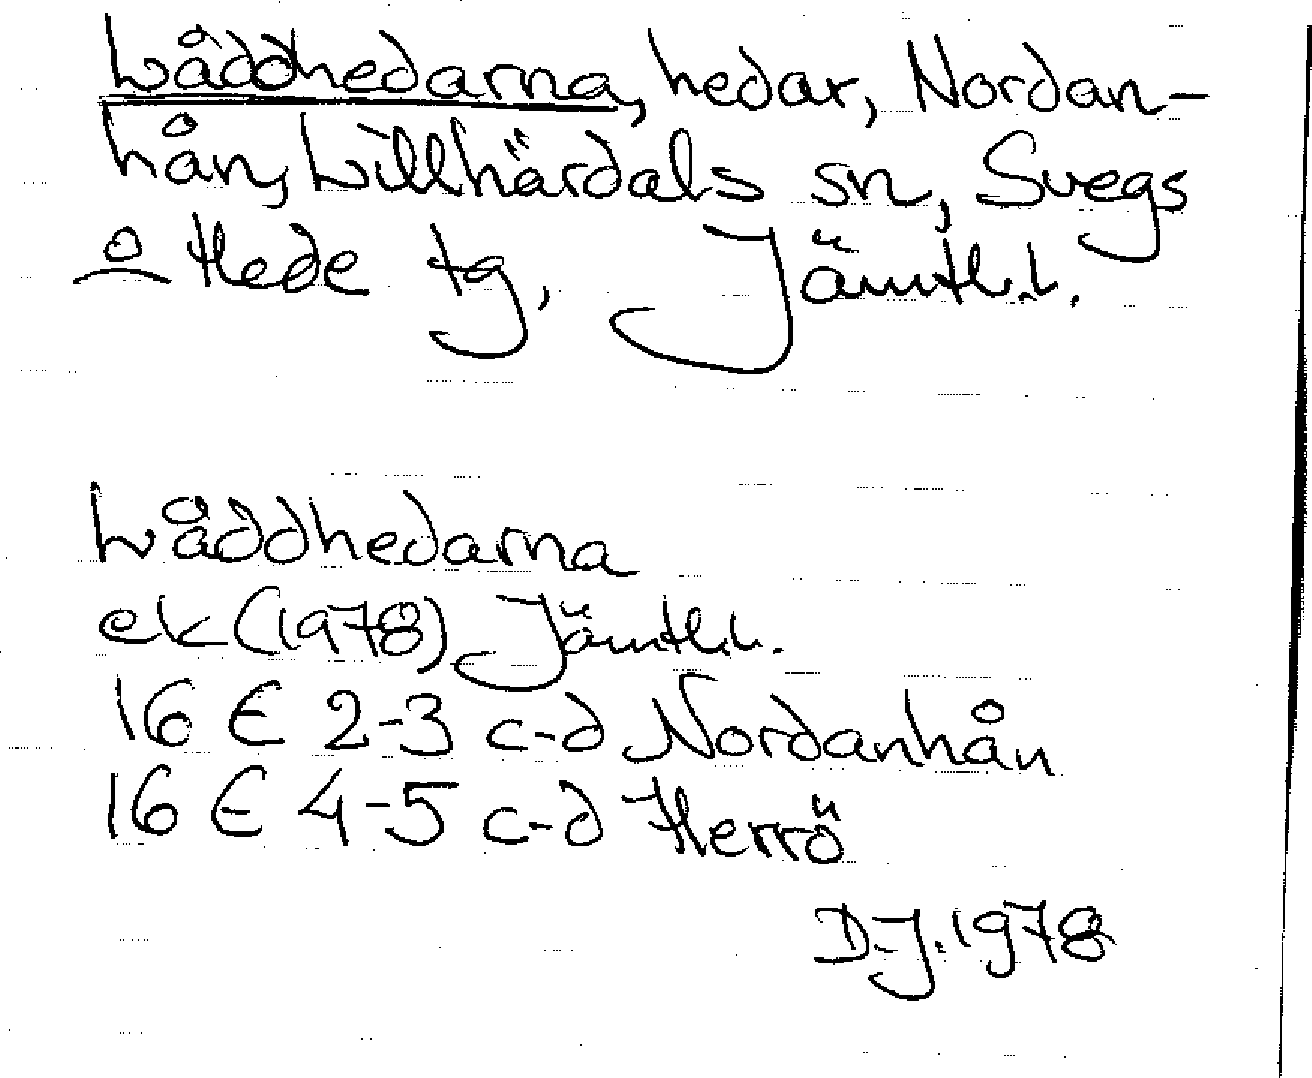 Låddhedarna, hedar, Nordan-
hån, Lillhärdals sn, Svegs
o Hede tg, Jämtl.l.
Låddhedarna
ek (1978) Jämtl.l.
16 E 2-3 c-d Nordanhån
16 E 4-5 c-d Herrö
D.J. 1978